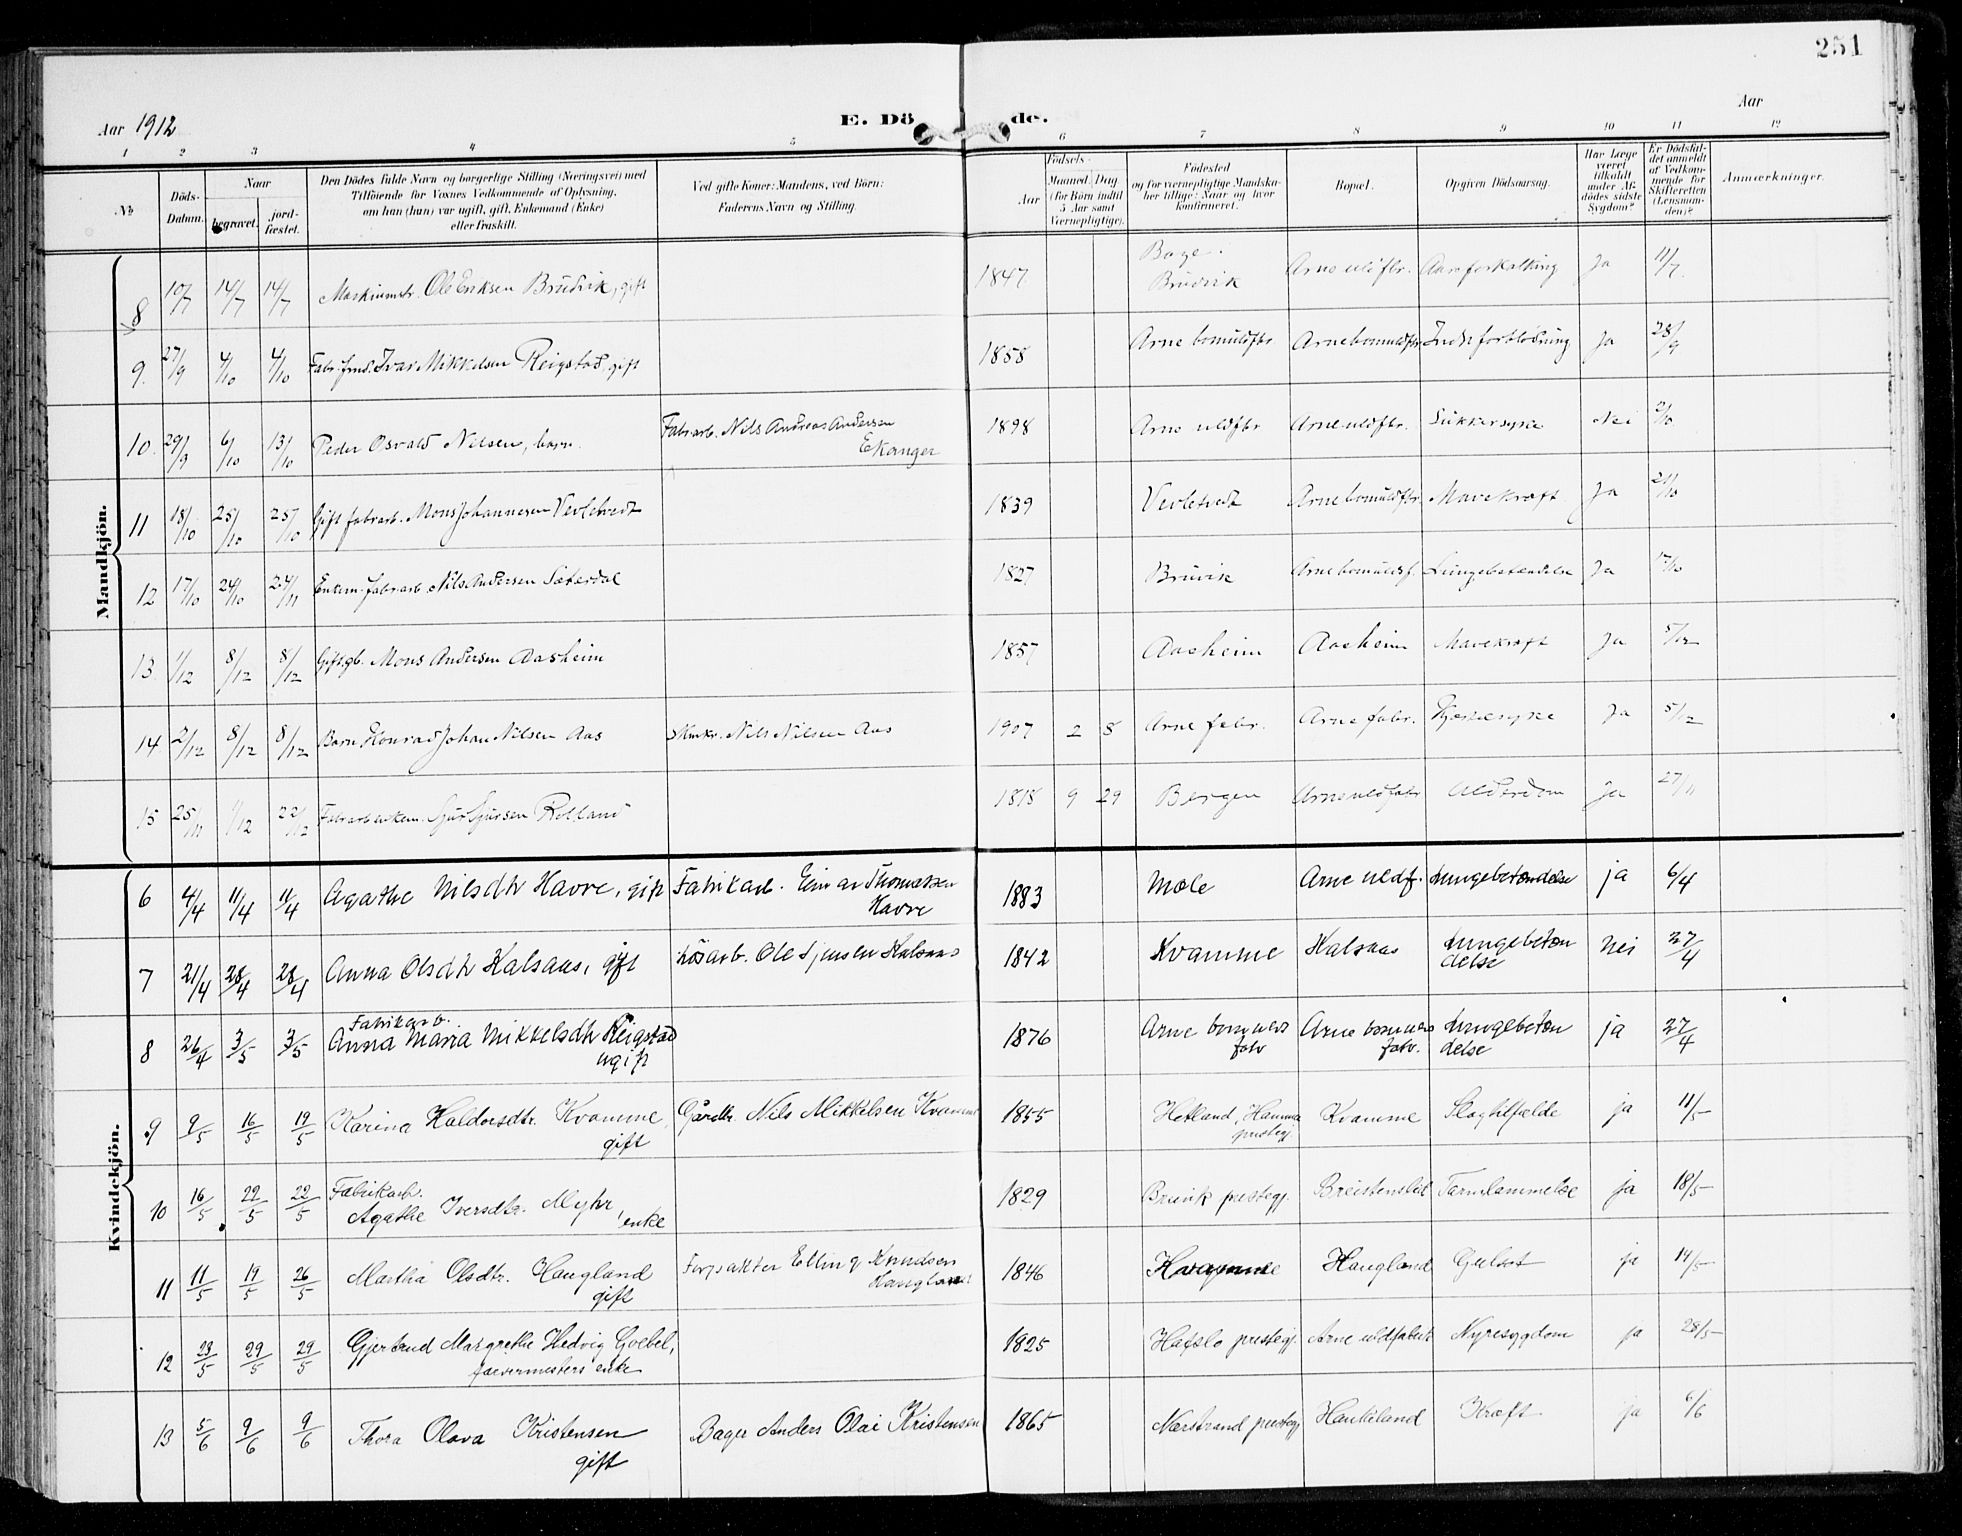 251
Aar 1912
E. Dö de.
Aar
1 2 3 4 5 6 7 8 9 10 11 12
No
Döds-Datum.
Naar
begravet.
jord-fæstet.
Den Dödes fulde Navn og borgerlige Stilling (Næringsvei) med
Tilföiende for Voxnes Vedkommende af Oplysning,
om han (hun) var ugift, gift, Enkemand (Enke)
eller fraskilt.
Ved gifte Koner: Mandens, ved Börn:
Faderens Navn og Stilling.
Födsels-
Aar
Maaned. Dag
(for Börn indtil
5 Aar samt
Værnepligtige).
Födested
og for værnepligtige Mandska-
ber tillige: Naar og hvor
konfirmeret.
Bopæl.
Opgiven Dödsaarsag.
Har Læge
været
tilkaldt
under Af-
dödes sidste
Sygdom?
Er Dödsfal-
det anmeldt
af Vedkom-
mende for
Skifteretten
(Lensman-
den)?
Anmærkninger.
Mandkjön.
8 10/7 14/7 14/7 Maskinmstr. Ole Eriksen Brudvik, gift 1847 Brudvik Arne uldfbr. Aareforkalkning Ja 11/7
9. 27/9 4/10 4/10 Fabr.frmd. Ivar Mikkelsen Reigstad, gift 1858 Arne bomuldfbr. Arne bomuldfbr. Ja 28/9
10. 29/9 6/10 13/10 Peder Osvald Nilsen, barn. Fabrarb. Nils Andreas Andersen
Ekanger 1898 Arne uldfbr Arne uldfbr. Sukkersyke Nei 2/10
11 18/10 25/10 25/10 Gift fabrarb. Mons Johannesen Vevletvedt 1839 Vevletvedt Arne bomuldfbr. Mavekræft Ja 21/10
12 17/10 24/10 24/11 Enkem. fabrarb. Nils Andersen Sæterdal 1827 Bruvik Arne bomuldsf. Lungebetændelse Ja 17/10
13. 1/12 8/12 8/12 Gift gb. Mons Andersen Aasheim 1857 Aasheim Aasheim Mavekræft Ja 5/12
14 2/12 8/12 8/12 Barn Konrad Johan Nilsen Aas Nils Nilsen Aas 1907 2 8 Arne fabr. Arne fabr. Ja 5/12
15 25/11 1/12 22/12 Fabrarb enkem. Sjur Sjursen Rolland 1818 9 29 Bergen Arne uldfabr Alderdom Ja 27/11
Kvindekjön.
6 4/4 11/4 11/4 Agathe Nilsdtr Havre, gift Fabrikarb. Einar Thomassen
Havre 1883 Mæle Arne uldf. Lungebetændelse ja 6/4
7 21/4 28/4 28/4 Anna Olsdtr Kalsaas, gift Løsarb. Ole Kalsaas 1842 Kvamme Kalsaas Lungebetæn
delse nei 27/4
8 26/4 3/5 3/5 Fabrikarb.
Anna Maria Mikkelsdtr Reigstad
ugift 1876 Arne
fabr Arne
fabr. Lungebetæn
delse ja 27/4
9 9/5 16/5 19/5 Karina Haldorsdtr. Kvamme,
gift Gårdbr. Nils Mikkelsen Kvamme 1855 Hetland, Hamre
prestegj. Kvamme Slagtilfælde ja 11/5
10 16/5 22/5 22/5 Fabrikarb.
Agathe Iversdtr. Myhr,
enke 1829 Bruvik prestegj. Breistenslet Tarmlammelse ja 18/5
11 11/5 19/5 26/5 Martha Olsdtr. Haugland
gift Forpakter Elling Knudsen
Haugland 1846 Kvamme Haugland Gulsot ja 14/5
12 23/5 29/5 29/5 Gjertrud Margrethe Hedvig Goebel,
farvermesters enke 1825 Hafslo prestegj. Arne uldfabrik Nyresygdom ja 28/5
13 5/6 9/6 9/6 Thora Olava Kristensen
gift Bager Anders Olai Kristensen 1865 Nærstrand prestegj Haukeland Kræft ja 6/6